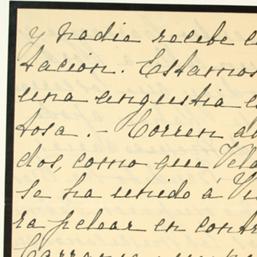 y nadie recibe c
tación. Estamos
una angustia e
tosa. – Corren al
dos, como que Vela
se ha unido á Vi
ra pelear en contr
Carranza